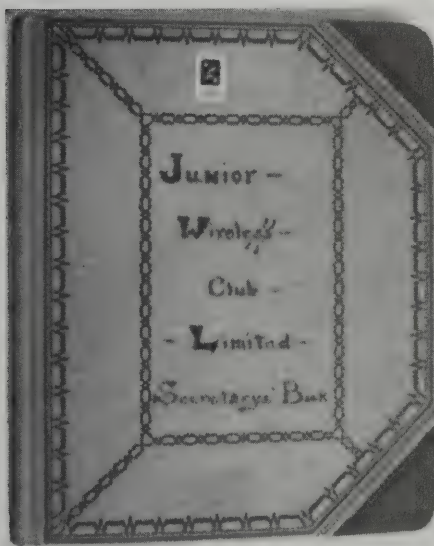 Junior -
Wireless -
Club -
- Limited -
Secretarys' Book